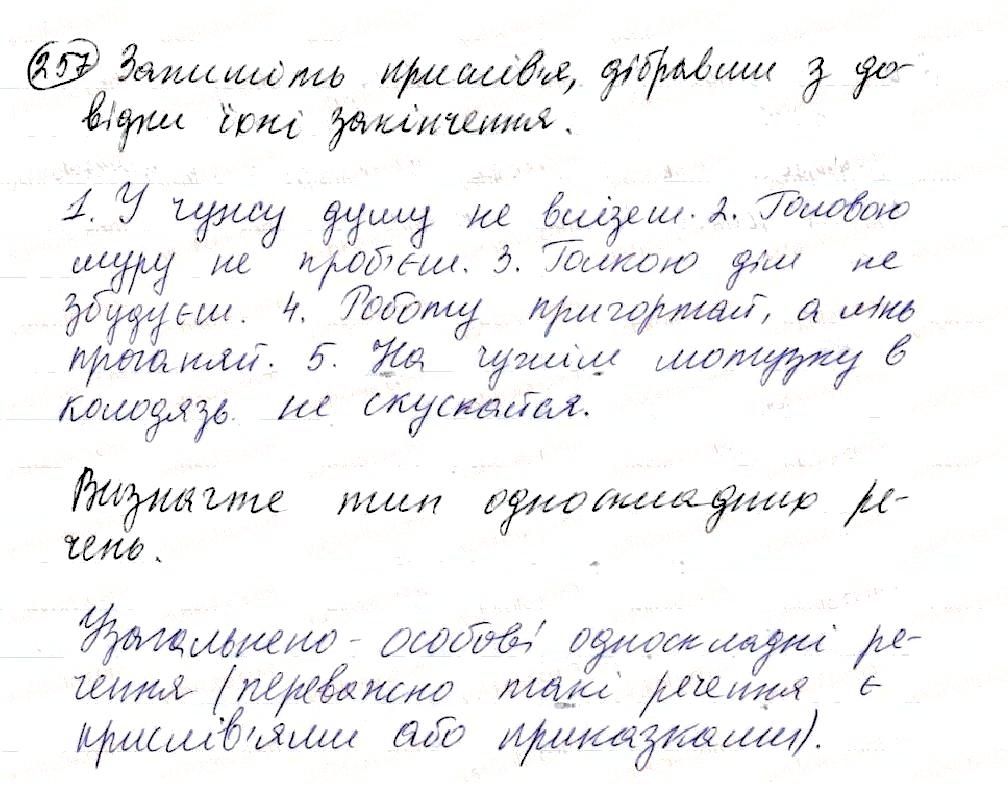 257 Запишіть прислів'я, дібравши з до-
відки їхні закінчення.
1. У чужу душу не влізеш. 2. Головою
муру не проб'єш. 3. Голкою дім не
збудуєш. 4. Роботу пригортай, а лінь
проганяй. 5. На чужім мотузку в
колодязь не спускайся.
Визначте тип односкладних ре-
чень.
Узагальнено-особові односкладні ре-
чення (переважно такі речення є
прислів'ями або приказками).